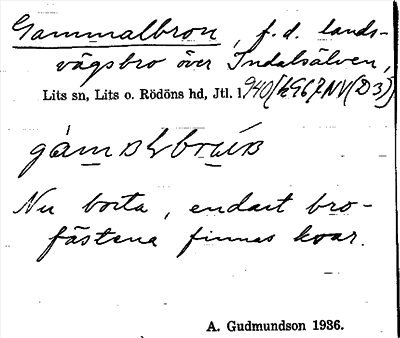 Gammalbron, f. d. lands-
vägsbro över Indalsälven,
Lits sn, Lits o. Rödöns hd, Jtl. 1
Nu borta, endast bro-
fästena finnas kvar.
A. Gudmundson 1936.